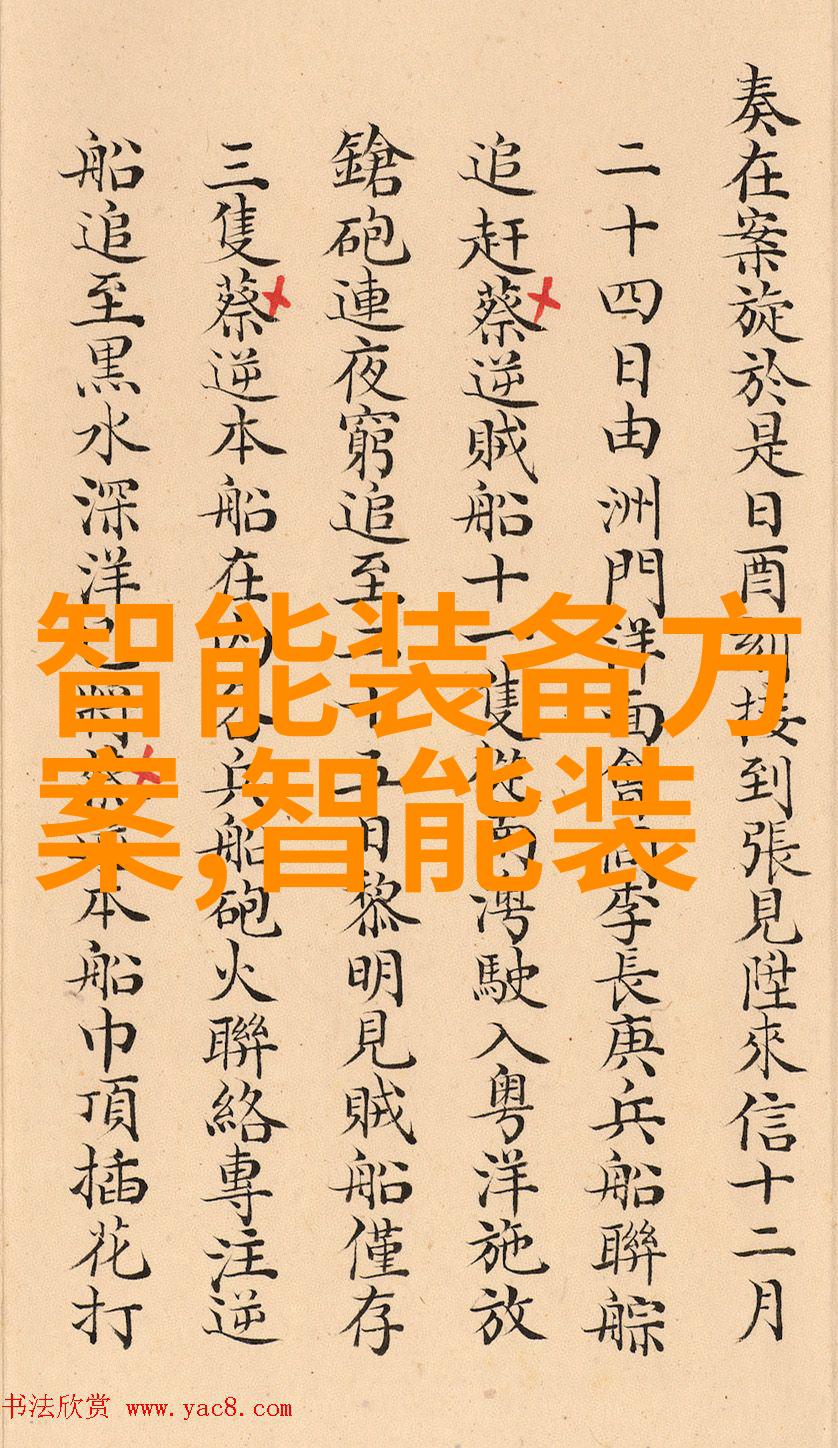 奏在案旋於是日酉刻接到張見陞來信十二月
二十四日由洲門洋面會同李長庚兵船聯䑸
追赶蔡逆賊船十一隻從南灣駛入粤洋施放
鎗砲連夜窮追至二十五日黎明見賊船僅存
三隻蔡逆本船在內分兵船砲火聯絡專注逆
船追至黒水深洋已將蔡逆本船巾頂插花打
智能装备方
案,智能装
书法欣赏 www.yac8.com